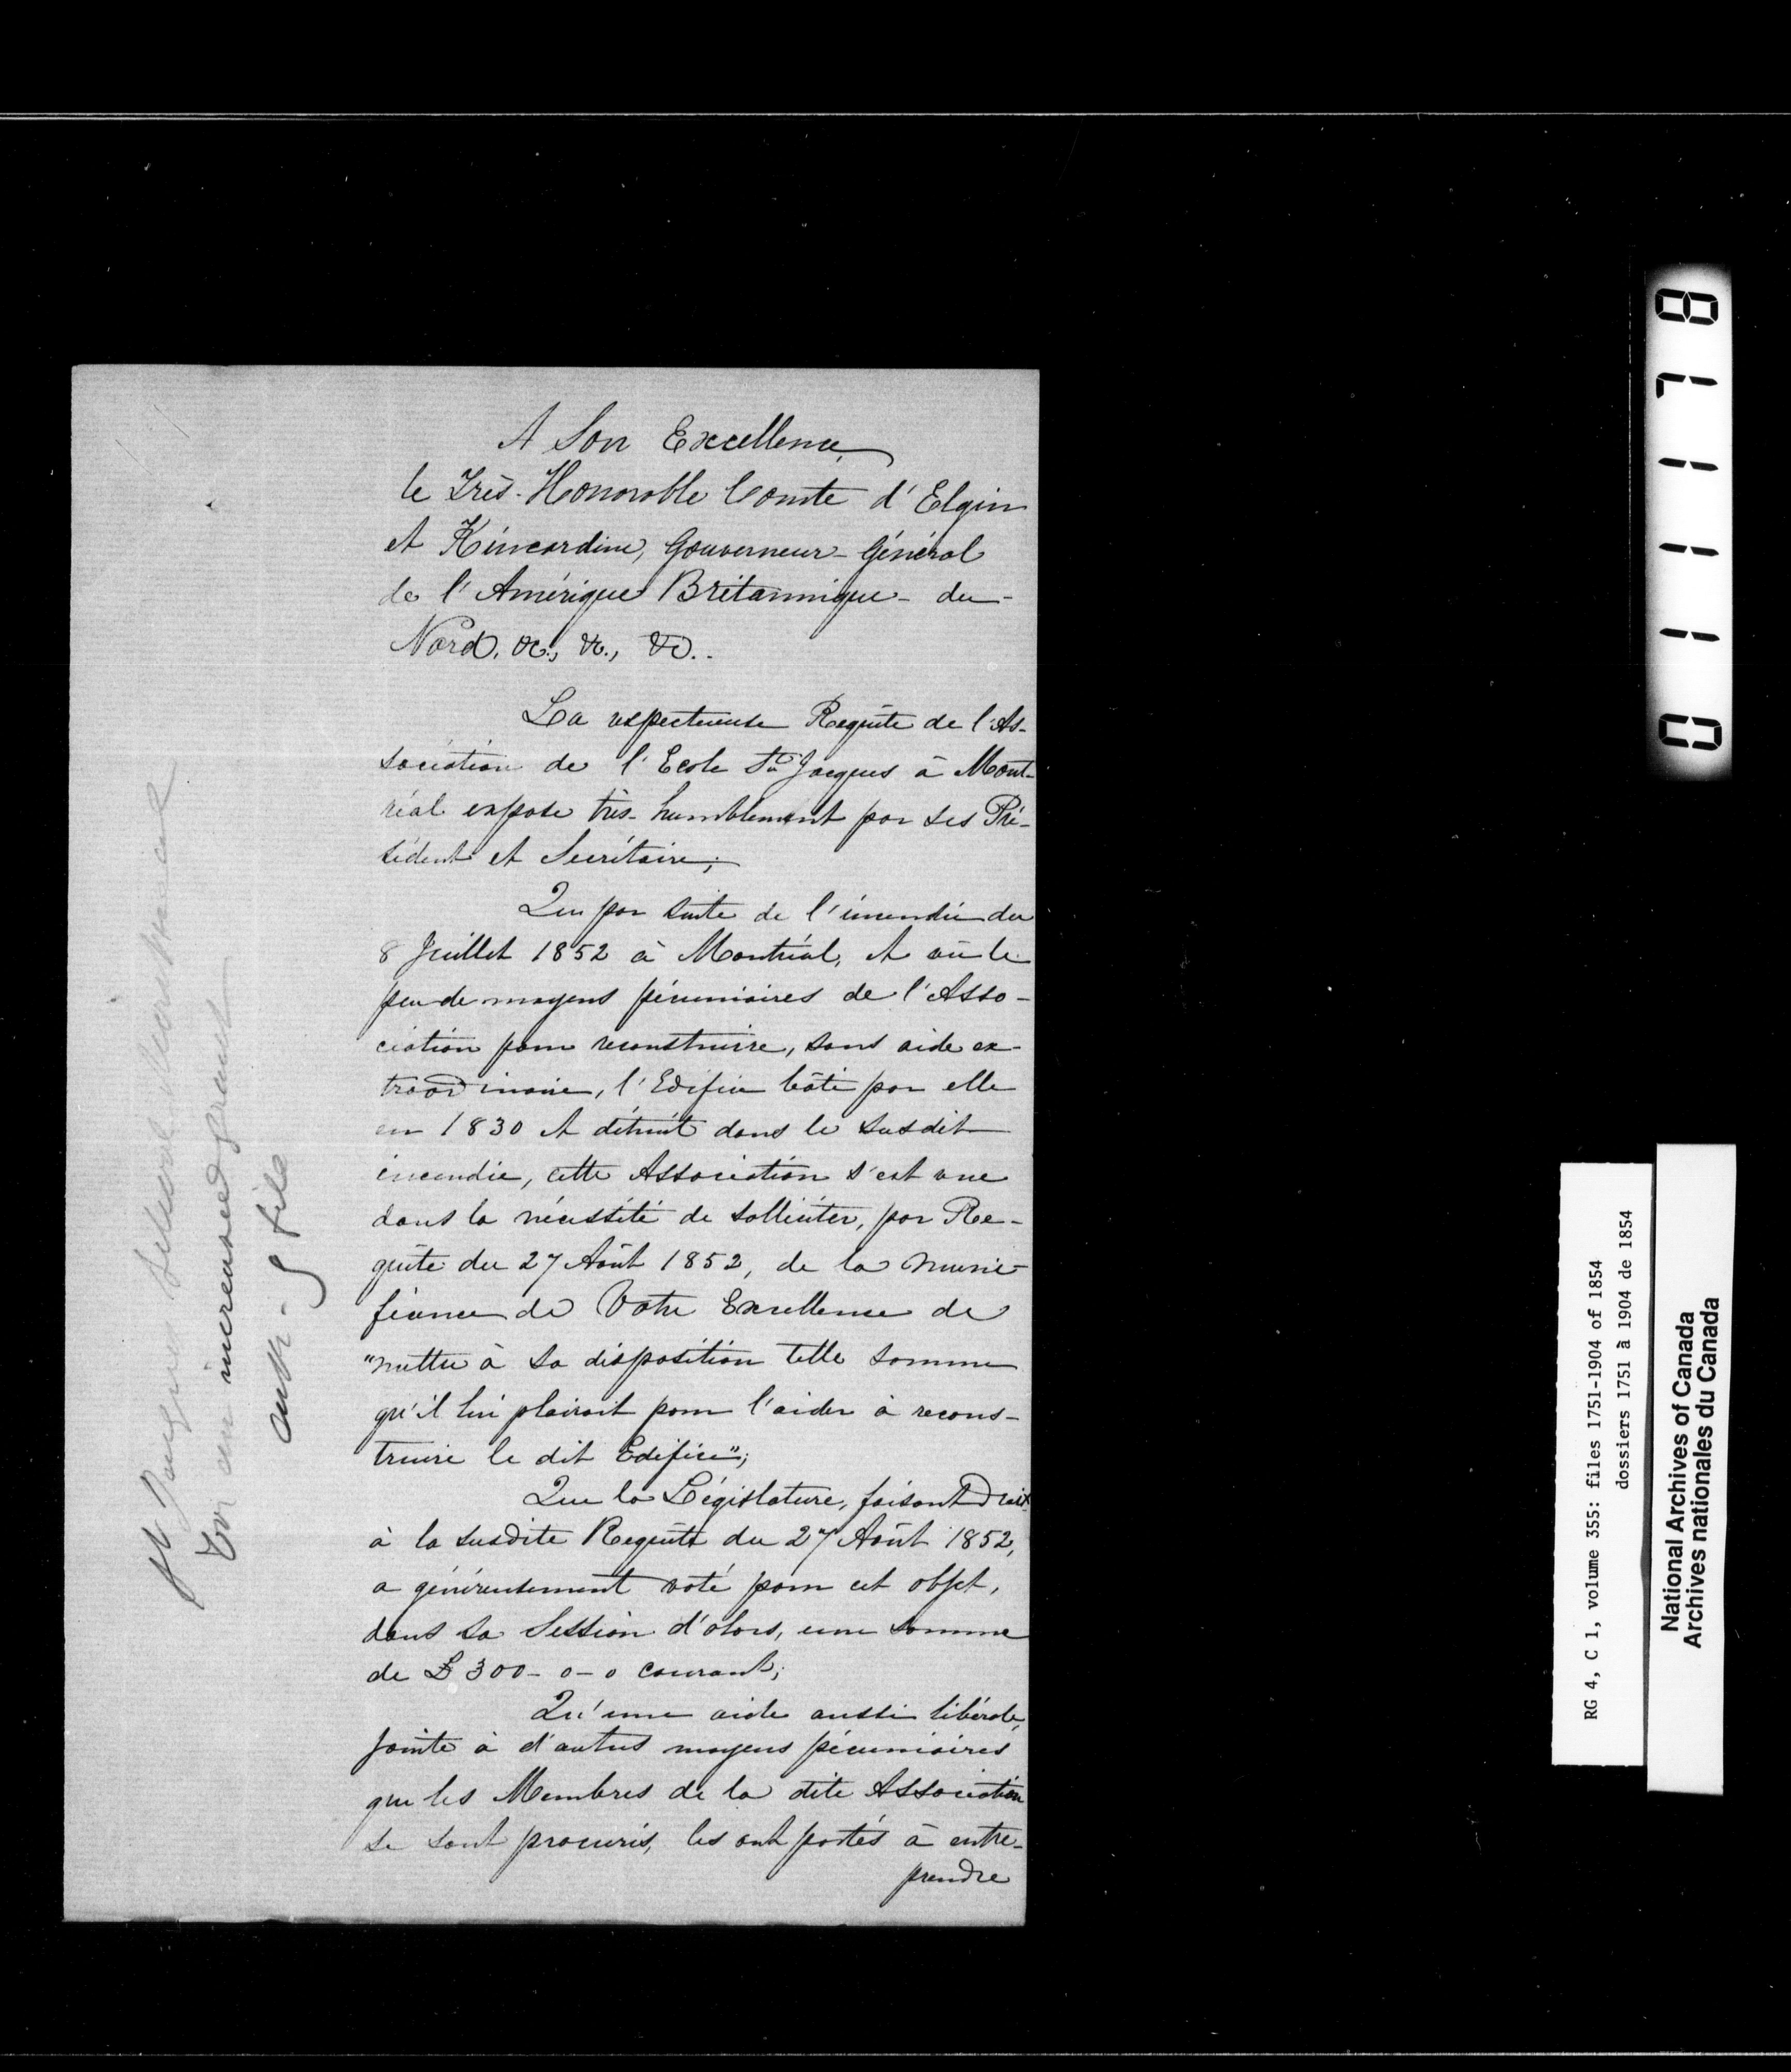 A Son Excellence,
le Très-Honorable Comte d'Elgin
et Kincardine, Gouverneur-Général
de l'Amérique Britannique-du-
Nord, &c., &c., &c..
La respectueuse Requête de l'As-
sociation de l'Ecole St. Jacques à Mont-
réal expose très-humblement par ses Pré-
sident et Secrétaire;
Que par suite de l'incendie du
8 Juillet 1852 à Montréal, et vû le
peu de moyens pécuniaires de l'Asso-
ciation pour reconstruire, sans aide ex-
traordinaire, l'Edifice bâti par elle
en 1830 et détruit dans le susdit
incendie, cette Association s'est vue
dans la nécessité de solliciter, par Re-
quête du 27 Août 1852, de la muni-
ficence de Votre Excellence de
"mettre à sa disposition telle somme
qu'il lui plairait pour l'aider à recons-
truire le dit Edifice";
Que la Législature, faisant Droit
à la susdite Requête du 27 Août 1852,
a généreusement voté pour cet objet,
dans sa Session d'alors, une somme
de £300-0-0 courant;
Qu'une aide aussi libérale,
jointe à d'autres moyens pécuniaires
que les Membres de la dite Association
se sont procurés, les ont portés à entre-
prendre
St Jacques School Montreal
for an increased grant
file
0 1 1 1 7 8
RG 4, C 1, volume 355: files 1751-1904 of 1854
dossiers 1751 à 1904 de 1854
National Archives of Canada
Archives nationales du Canada